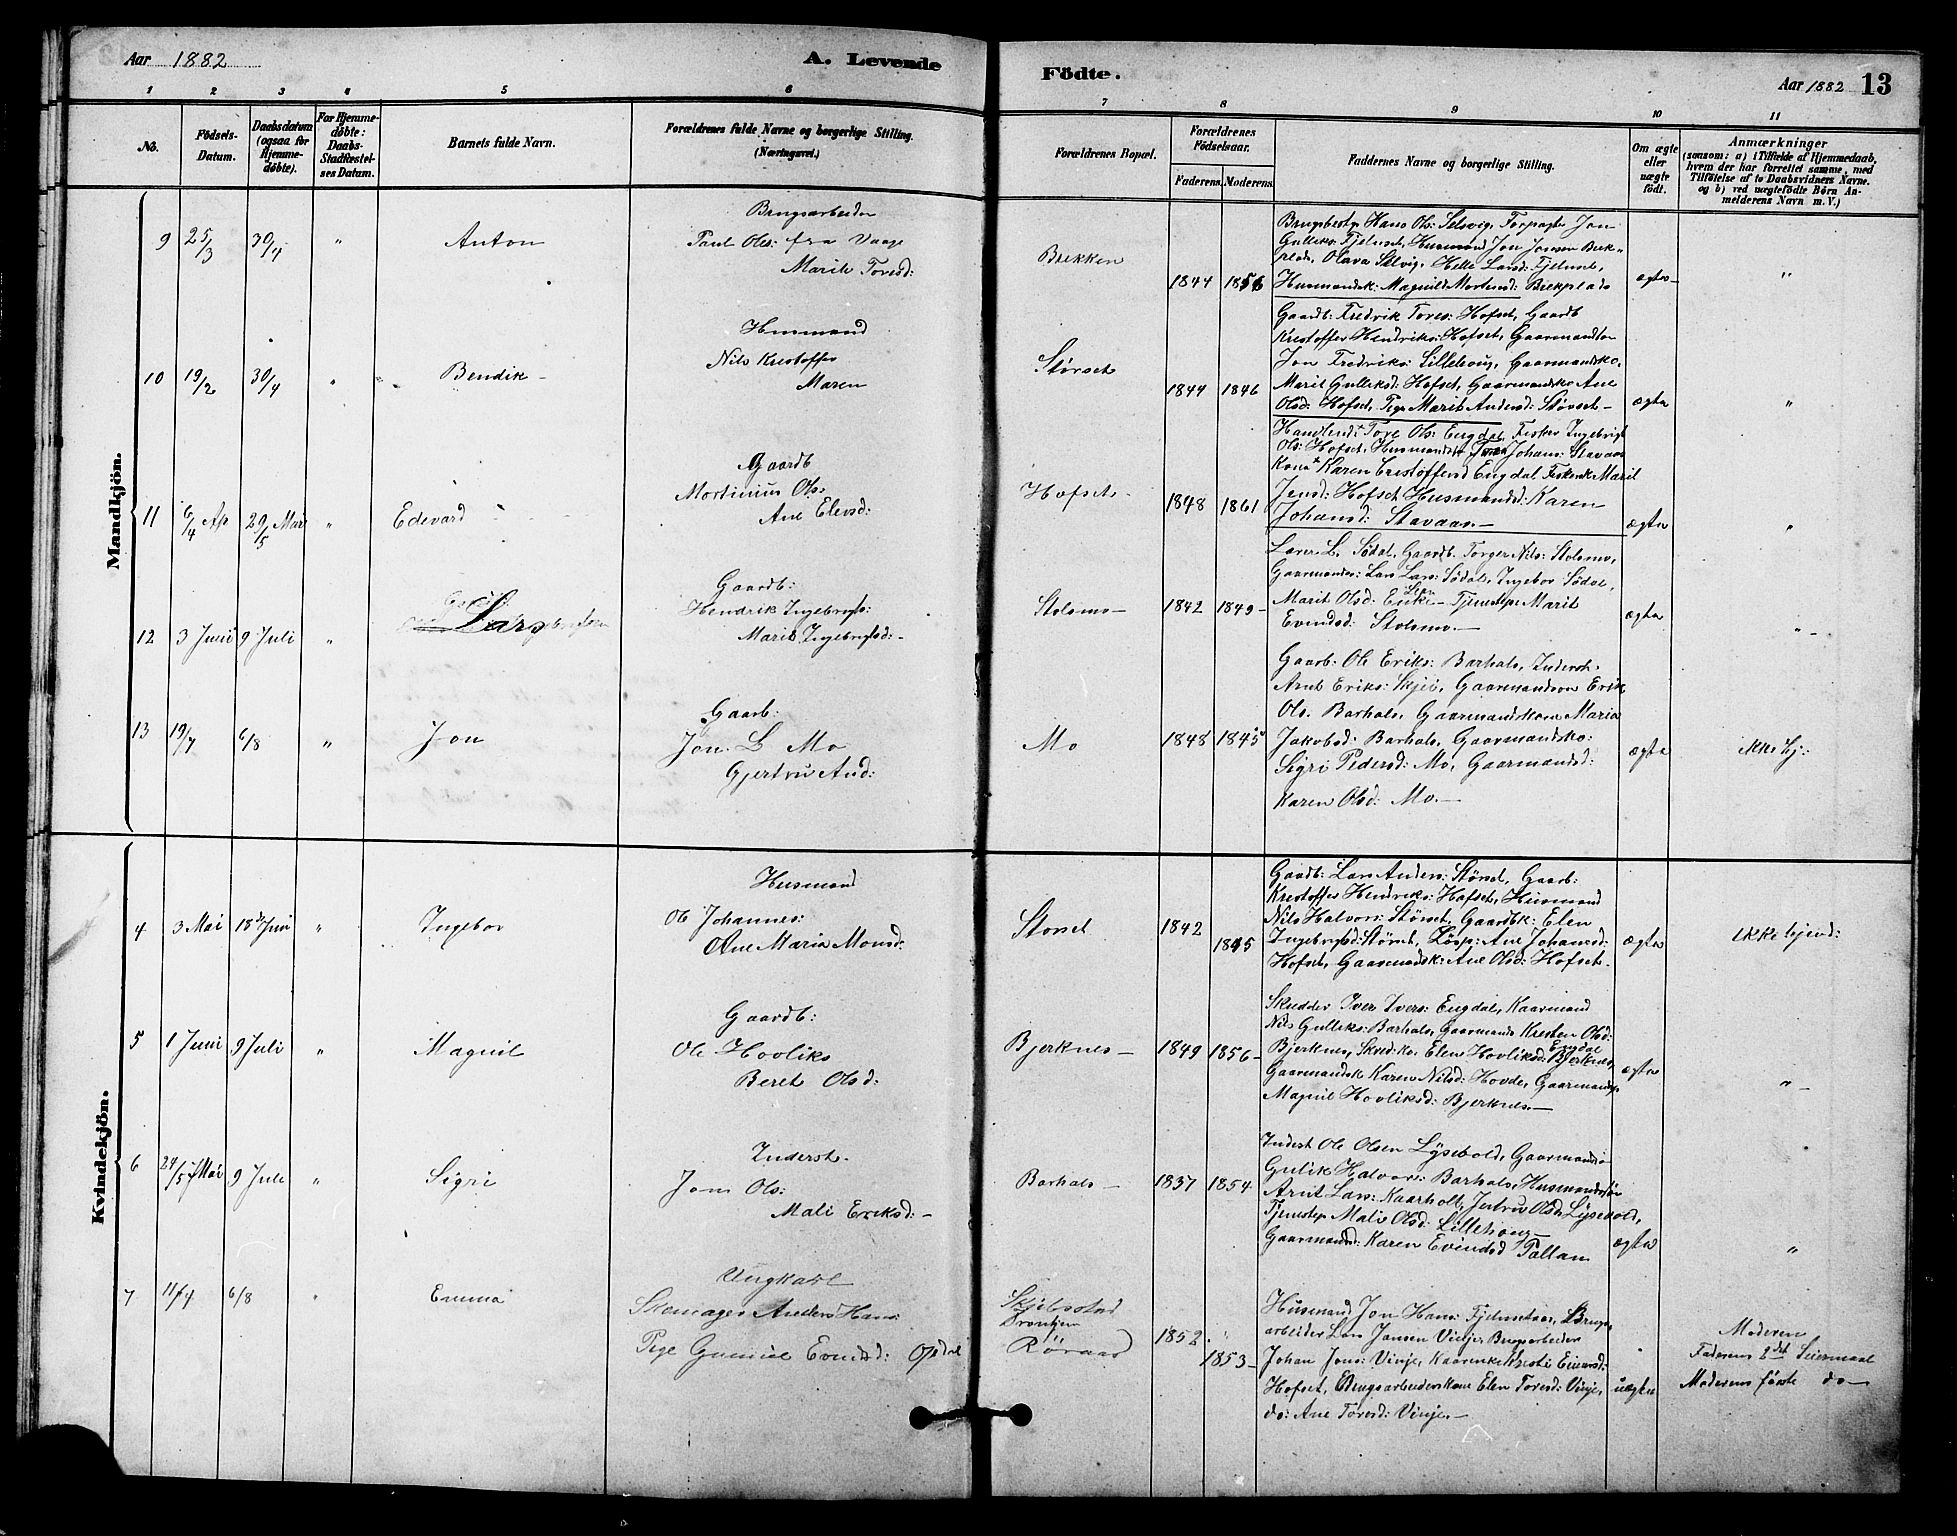 Aar 1882
A. Levende
Födte.
Aar 1882 13
1 2 3 4 5 6 7 8 9 10 11
No.
Födsels-
Datum.
Daabsdatum
(ogsaa for
Hjemme-
döbte).
For Hjemme-
døbte:
Daabs-
Stadfæstel-
ses Datum.
Barnets fulde Navn.
Forældrenes fulde Navne og borgerlige Stilling.
(Næringsvei.)
Forældrenes Bopæl.
Forældrenes
Födselsaar.
Faderens. Moderens.
Faddernes Navne og borgerlige Stilling.
Om ægte
eller
uægte
födt.
Anmærkninger
(saasom: a) i Tilfælde af Hjemmedaab,
hvem der har forrettet samme, med
Tilföielse af to Daabsvidners Navne.
og b) ved uægtefödte Börn An-
melderens Navn m. V.)
Mandkjön.
9 25/3 30/4 " Anton
Brugsarbeider
Paul Ols: fra Vaage
Marit Toresd:
Brekken
1844 1856
Brugsbesty Hans Ols: Selsvig, Jon
Gulliks: Fjeluset, Husmand Jon Jonsen Brek-
plads, Olava Selvig, Larsd: Fjeluset,
Husmandsk: Magnild Mortensd: Brekplads
ægte "
10 19/2 30/4 " Bendik
Husmand
Nils Krestoffer
Maren
Størset
1844 1846
Gaardb: Fredrik Tores: Hofset, Gaardb
Krestoffer Hendriks: Hofset, Gaarmandsøn
Jon Fredriks: Lillehoug, Gaarmandsko.
Marit Gulliksd: Hofset, Gaarmandsko Ane
Olsd: Hofset, Pige Marit Andersd: Størset
ægte "
11 6/4 Ap 29/5 Mai " Edevard
Gaardb
Mortinius Ols:
Ane Elevsd:
Hofset
1848 1861
Handlend: Tore Ols: Engdal, Fisker Ingebrigt
Ols: Hofset, Husmandss Johans: Stavaas
Kone Karen Crestoffersd Engdal, Marit
Jensd: Hofset Husmandsd: Karen
Johansd: Stavaas
ægte "
12 3 Juni 9 Juli " Lars
Gaardb:
Hendrik Ingebrigts:
Marit Ingebrigtsd:
Stolsmo
1842 1849
Lærer L. Södal, Gaardb Torger Nils: Stolsmo,
Gaarmands: Lars Lars: Södal, Ingebor Södal,
Marit Olsd: Tjenestep Marit
Evendsd: Stolsmo
ægte "
13 19/7 6/8 " Jon
Gaarb:
Jon L Mo
Gjertru And:
Mo
1848 1845
Gaarb: Ole Eriks: Barhals, Inderst:
Arnt Eriks: Skjei, Gaarmandsøn Erik
Ols. Barhals, Gaarmandskone Maria
Jakobsd: Barhals, Gaarmandsko:
Sigri Pedersd: Mo, Gaarmandsd:
Karen Olsd: Mo
ægte ikke hj:
Kvindekjön.
4 3 Mai 18 Juni " Ingebor
Husmand
Ole Johannes:
Ane Maria Monsd:
Størset
1842 1845
Gaadb: Lars Anders: Størset, Gaarb:
Krestoffer Hendriks: Hofset, Husmand
Nils Halvors: Størset, Gaardbk: Elen
Ingebrigtsd: Størset, Ane Johansd:
Hofset, Gaarmandsk: Ane Olsd: Hofset
ægte ikke hjemd:
5 1 Juni 9 Juli " Magnil
Gaardb:
Ole Hovliks
Beret Olsd:
Bjerknes
1849 1856
Skrædder Iver Ivers: Engdal, Kaarmand
Nils Gulliks: Barhals, Gaarmands Kresten Olsd:
Bjerknes, Skrædko. Elen Hovliksd: Engdal Bjerknes,
Gaarmandsk Karen Nilsd: Hovde, Gaarmandsp
Magnil Hovliksd: Bjerknes
ægte "
6 24/5 Mai 9 Juli " Sigri
Inderst
Jon Ols:
Mali Eriksd:
Barhals
1837 1854
Inderst Ole Olsen Lysevold, Gaarmands:
Gullik Halvors: Barhals, Husmandssøn
Arnt Lars: Kaarholt, Jertru Olsd: Lysevold,
Tjenestep Mali Olsd: Lillehoug
Gaarmandsd: Karen Evendsd Pallan
ægte "
7 11/4 6/8 " Emma
Ungkarl
Skomager Anders Hans:
Pige Gunnil Evendsd: Opdal
Skjelsstad
Tronhjem
Röraas
1852 " 1853
Husmand Jon Hans: Fjelnsetaas, Brugs-
arbeider Lars Jansen Vinje, Brugsarbeider
Johan Jons: Vinje, Kaarenke Kristi Einersd:
Hofset, Brugsarbeiderskone Elen Toresd: Vinje,
do: Ane Toresd: Vinje
uægte
Moderen
Faderens 2det Leiermaal
Moderens förste do